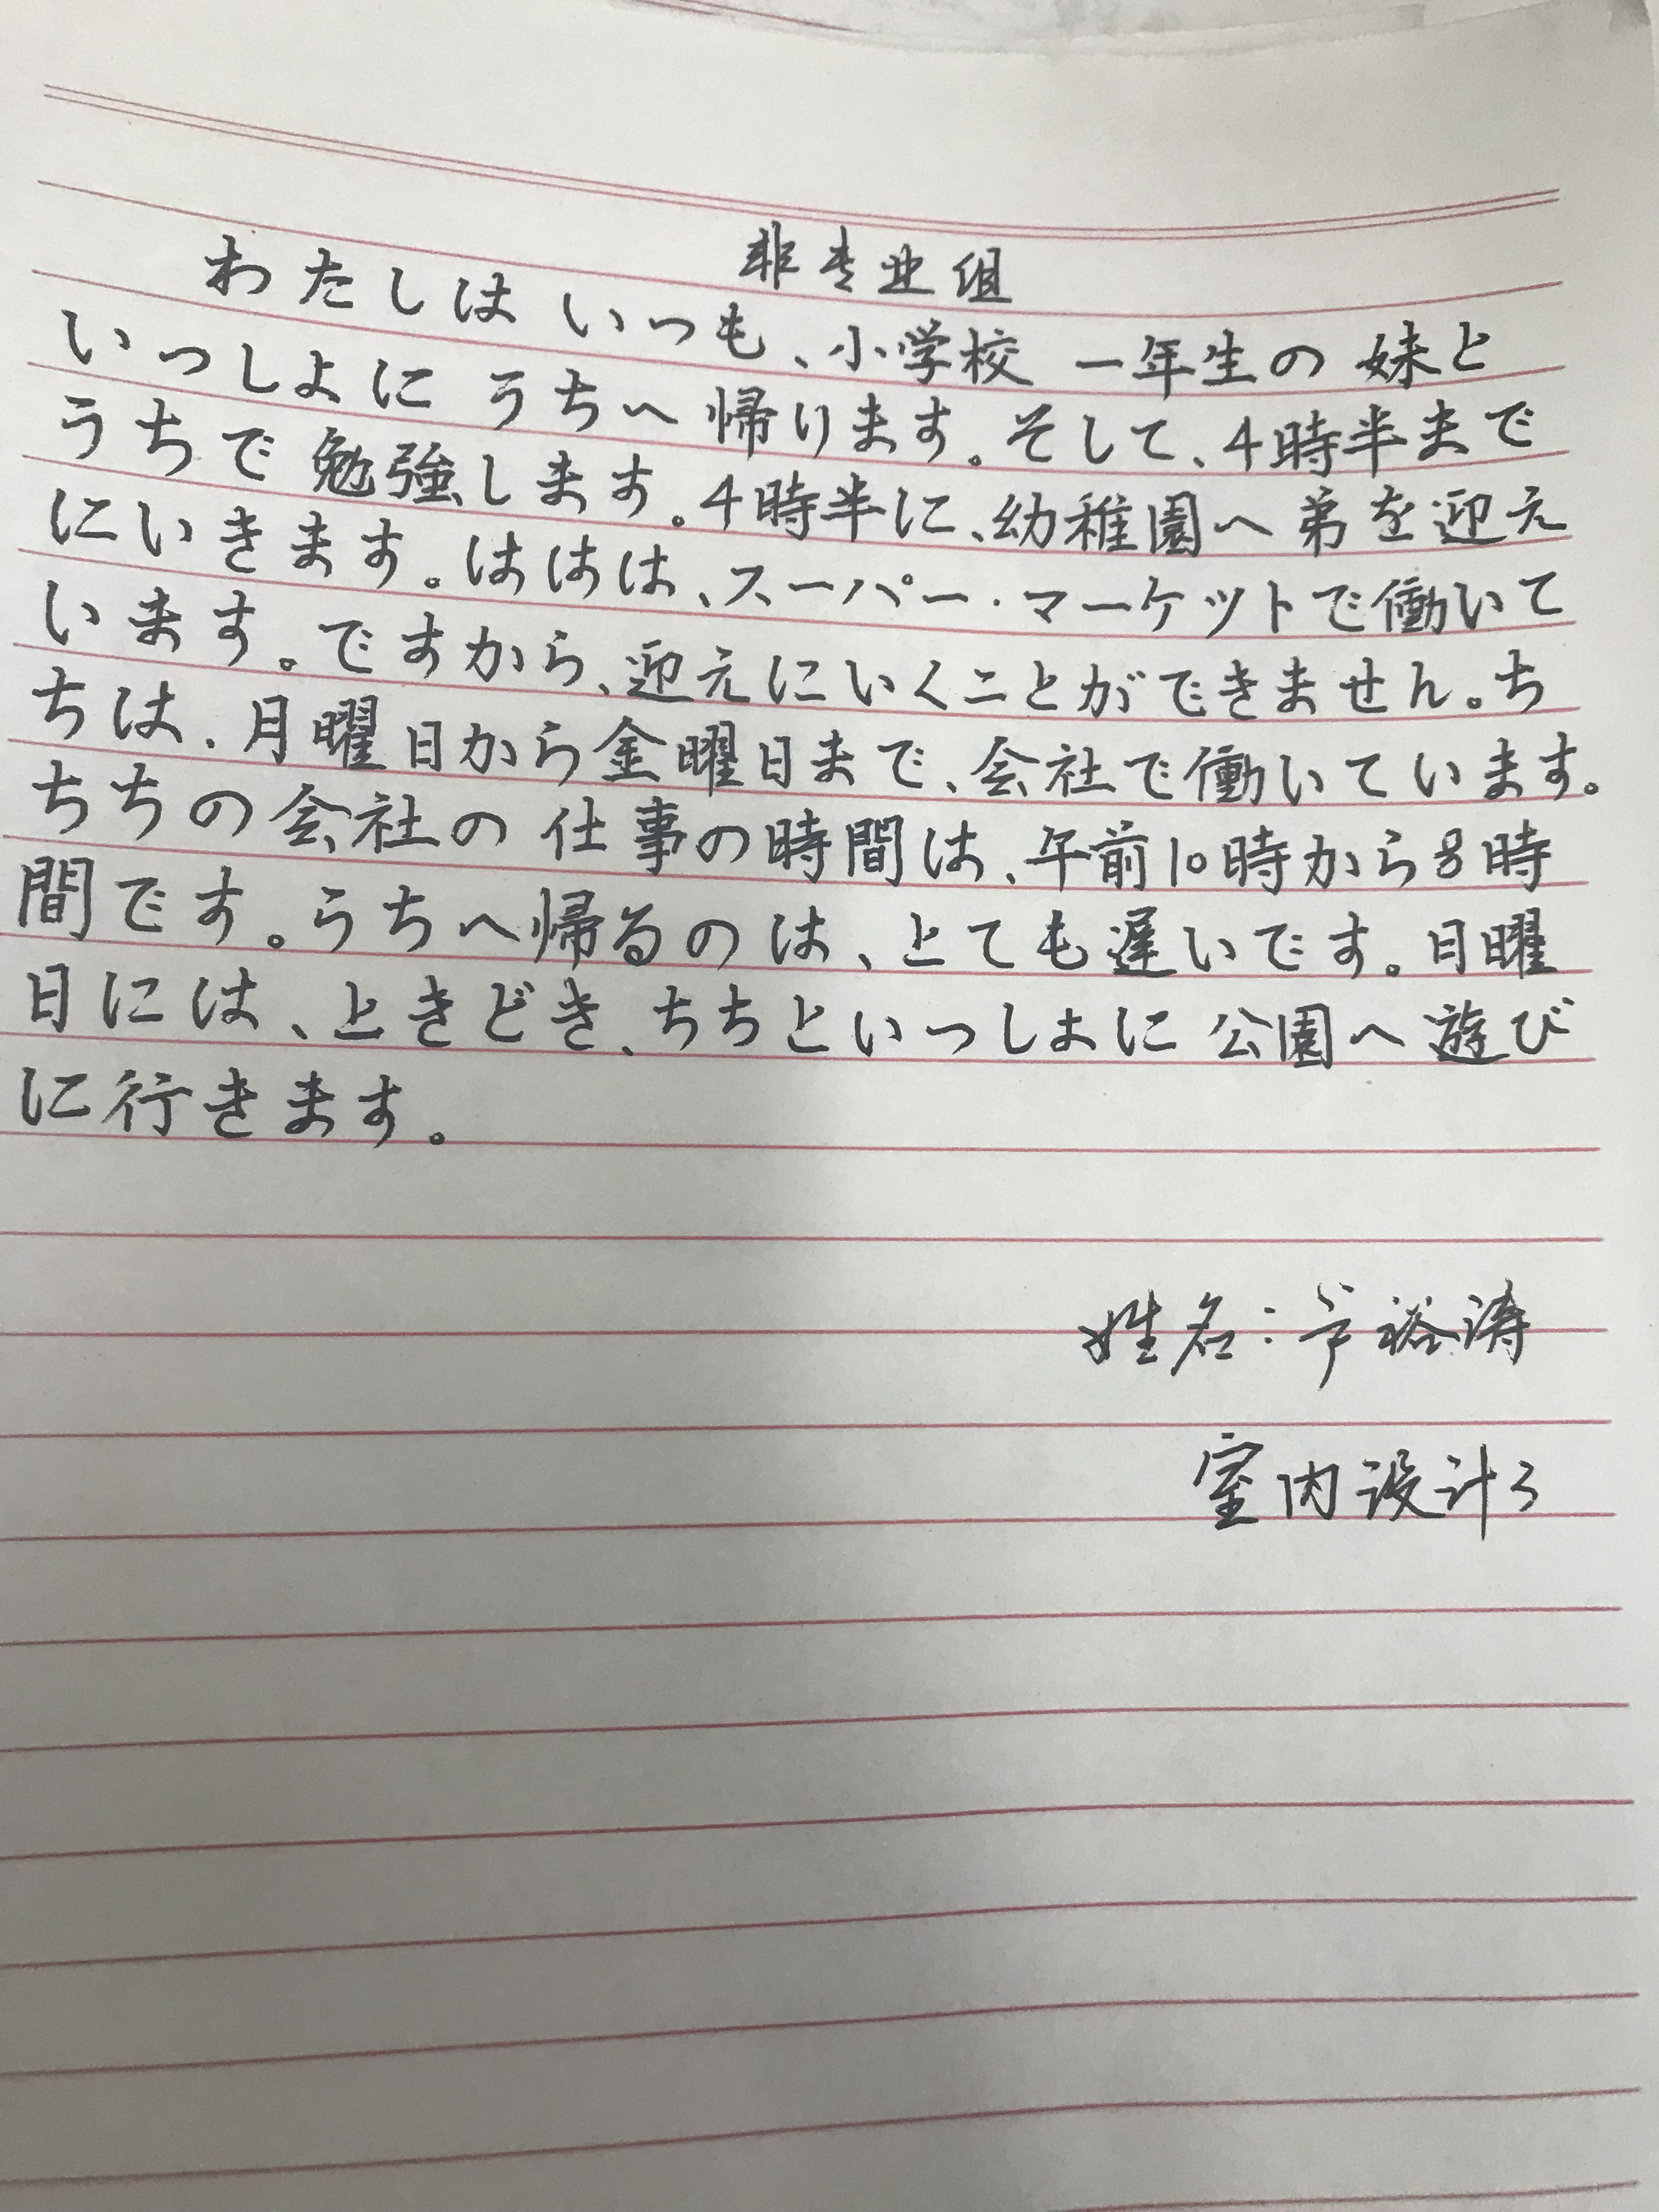 非专业组
わたしは いつも、小学校 一年生の 妹と
いっしょに うちへ 帰ります。そして、4時半まで
うちで 勉強します。4時半に、幼稚園へ 弟を迎え
にいきます。ははは、スーパー・マーケットで働いて
います。ですから、迎えにいくことができません。ち
ちは、月曜日から金曜日まで、会社で働いています。
ちちの会社の 仕事の時間は、午前10時から8時
間です。うちへ帰るのは、とても遅いです。日曜
日には、ときどき、ちちといっしょに 公園へ遊び
に行きます。
姓名:芦裕涛
室内设计3